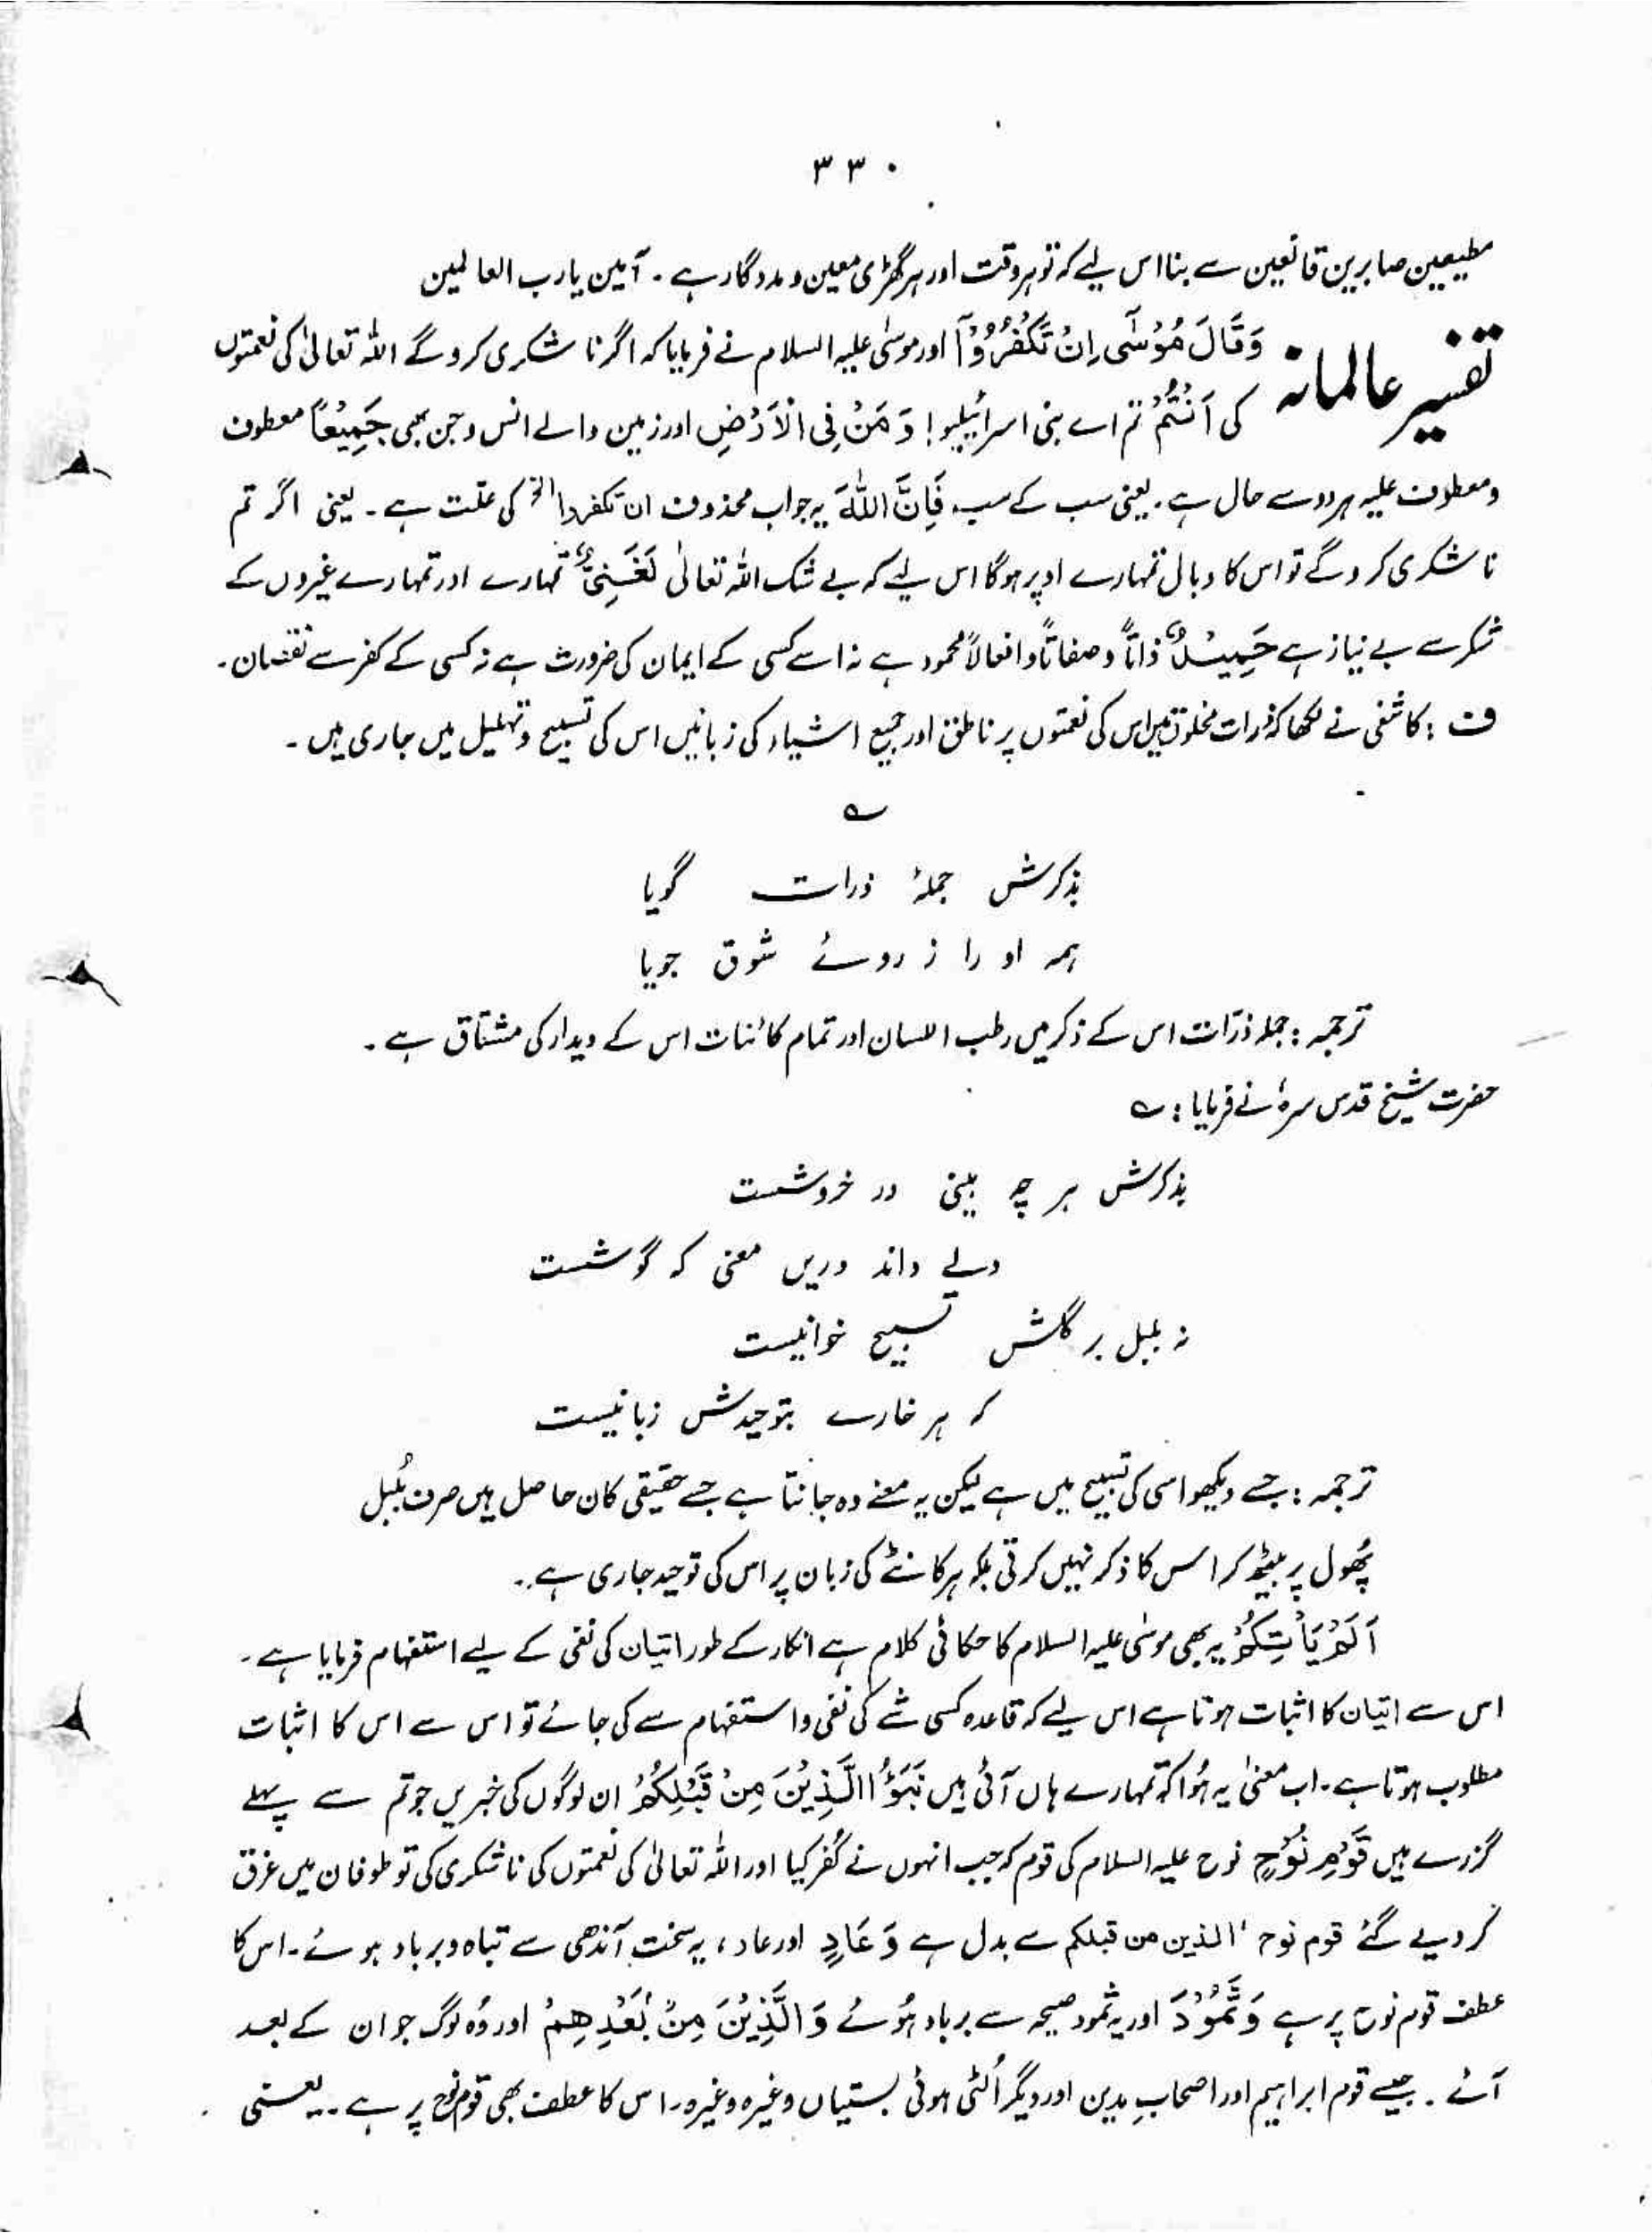 ۳۳۰
مطیعین صابرین قانعین سے بنا اس لیے کہ تو ہر وقت اور ہر گھڑی معین و مددگار ہے ۔ آمین یا رب العالمین
تفسیر عالمانہ
وَقَالَ مُوْسٰٓى اِنْ تَكْفُرُوْٓا اور موسٰی علیہ السلام نے فرمایا کہ اگر نا شکری کرو گے اللہ تعالیٰ کی نعمتوں
کی اَنْتُمْ تم اے بنی اسرائیلیو! وَ مَنْ فِی الْاَرْضِ اور زمین والے انس و جن بھی جَمِیْعًا معطوف
و معطوف علیہ ہر دو سے حال ہے ۔ یعنی سب کے سب فَاِنَّ اللّٰهَ یہ جواب محذوف ان تکفروا الخ کی علّت ہے ۔ یعنی اگر تم
نا شکری کرو گے تو اس کا وبال تمہارے اوپر ہوگا اس لیے کہ بے شک اللہ تعالیٰ لَغَنِیٌّ تمہارے اور تمہارے غیروں کے
شکر سے بے نیاز ہے حَمِیْدٌ ذاتاً و صفاتاً و افعالاً محمود ہے نہ اسے کسی کے ایمان کی ضرورت ہے نہ کسی کے کفر سے نقصان ۔
ف : کاشفی نے لکھا کہ ذرات مخلوق میں اس کی نعمتوں پر ناطق اور جمیع اشیاء کی زبانیں اس کی تسبیح و تہلیل میں جاری ہیں ۔
؎
بذکرش جملہٴ ذرات گویا
ہمہ او را ز روئے شوق جویا
ترجمہ : جملہ ذرّات اس کے ذکر میں رطب اللسان اور تمام کائنات اس کے دیدار کی مشتاق ہے ۔
حضرت شیخ قدس سرہٗ نے فرمایا : ؎
بذکرش ہر چہ بینی در خروشست
دلے داند دریں معنی کہ گوشست
نہ بلبل بر گلش تسبیح خوانیست
کہ ہر خارے بتوحیدش زبانیست
ترجمہ : جسے دیکھو اسی کی تسبیح میں ہے لیکن یہ معنے وہ جانتا ہے جسے حقیقی کان حاصل ہیں صرف بُلبل
پھُول پر بیٹھ کر اس کا ذکر نہیں کرتی بلکہ ہر کانٹے کی زبان پر اس کی توحید جاری ہے ۔
اَلَمْ یَاْتِكُمْ یہ بھی موسٰی علیہ السلام کا حکائی کلام ہے انکار کے طور اتیان کی نفی کے لیے استفہام فرمایا ہے ۔
اس سے اتیان کا اثبات ہوتا ہے اس لیے کہ قاعدہ کسی شے کی نفی و استفہام سے کی جائے تو اس سے اس کا اثبات
مطلوب ہوتا ہے ۔ اب معنیٰ یہ ہُوا کہ تمہارے ہاں آئی ہیں نَبَؤُا الَّذِیْنَ مِنْ قَبْلِكُمْ ان لوگوں کی خبریں جو تم سے پہلے
گزرے ہیں قَوْمِ نُوْحٍ نوح علیہ السلام کی قوم کہ جب انہوں نے کُفر کیا اور اللہ تعالیٰ کی نعمتوں کی نا شکری کی تو طوفان میں غرق
کر دیے گئے قوم نوح ' الذین من قبلکم سے بدل ہے وَ عَادٍ اور عاد ، یہ سخت آندھی سے تباہ و برباد ہوئے ۔ اس کا
عطف قوم نوح پر ہے وَ ثَمُوْدَ اور یہ ثمود صیحہ سے برباد ہُوئے وَ الَّذِیْنَ مِنْ بَعْدِهِمْ اور وُہ لوگ جو ان کے بعد
آئے ۔ جیسے قوم ابراہیم اور اصحابِ مدین اور دیگر اُلٹی ہوئی بستیاں وغیرہ وغیرہ ۔ اس کا عطف بھی قوم نوح پر ہے ۔ یعنی